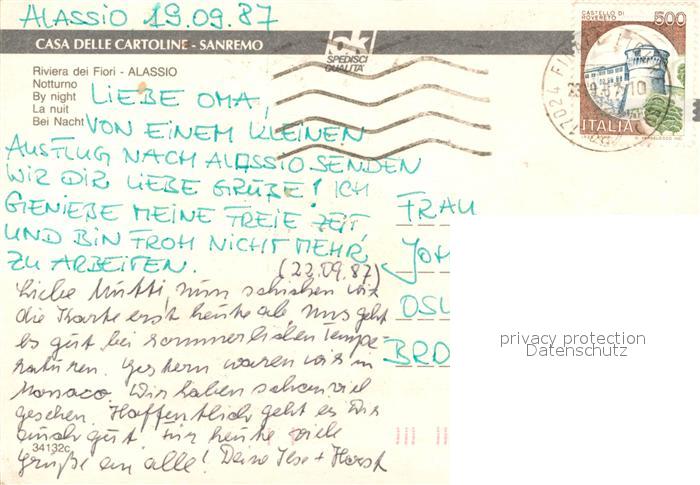 ALASSIO 19.09.87
CASA DELLE CARTOLINE - SANREMO
SPEDISCI
QUALITA'
CASTELLO DI
ROVERETO
500
ITALIA
17024 FINALE
Riviera dei Fiori - ALASSIO
Notturno
By night
La nuit
Bei Nacht
LIEBE OMA,
VON EINEM KLEINEN
AUSFLUG NACH ALASSIO SENDEN
WIR DIR LIEBE GRÜßE! ICH
GENIEßE MEINE FREIE ZEIT,
UND BIN FROH NICHT MEHR
ZU ARBEITEN.
(22.09.87)
Liebe Mutti, nun schicken wir
die Karte erst heute ab. Uns geht
es gut bei sommerlichen Tempe
raturen. Gestern waren wir in
Monaco. Wir haben schon viel
gesehen. Hoffentlich geht es Dir
auch gut. Für heute viele
Grüße an alle! Deine Ilse + Horst
34132c
FRAU
JOH
OSL
BRD
privacy protection
Datenschutz